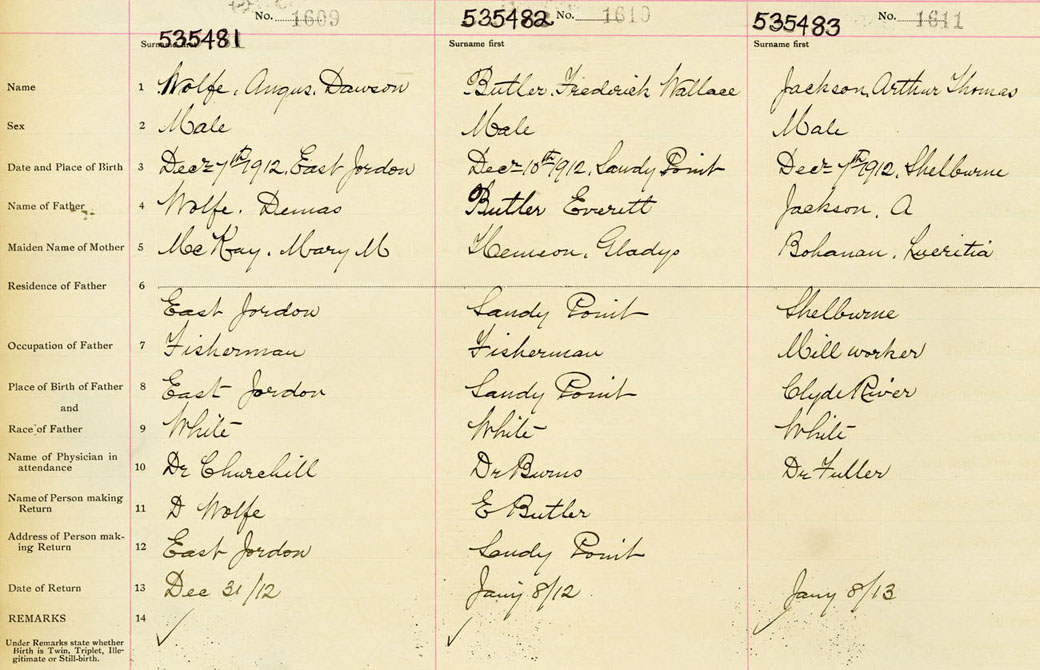 No. 1609 535482 No. 1610 535483 No. 1611
535481
Surname first Surname first Surname first
Name 1 Wolfe, Angus. Dawson Butler. Frederick Wallace Jackson, Arthur Thomas
Sex 2 Male Male Male
Date and Place of Birth 3 Dec 7th 1912. East Jordon Dec 10th 1912. Sandy Point Dec 7th 1912. Shelburne
Name of Father 4 Wolfe. Demas Butler Everett Jackson, A
Maiden Name of Mother 5 McKay. Mary M Hemeon, Gladys Bohanan, Lucritia
Residence of Father 6
East Jordon Sandy Point Shelburne
Occupation of Father 7 Fisherman Fisherman Mill worker
Place of Birth of Father 8 East Jordon Sandy Point Clyde River
and
Race of Father 9 White White White
Name of Physician in
attendance 10 Dr Churchill Dr Burns Dr Fuller
Name of Person making
Return 11 D Wolfe E Butler
Address of Person mak-
ing Return 12 East Jordon Sandy Point
Date of Return 13 Dec 31/12 Jany 8/12 Jany 8/13
REMARKS 14
Under Remarks state whether
Birth is Twin, Triplet, Ille-
gitimate or Still-birth.